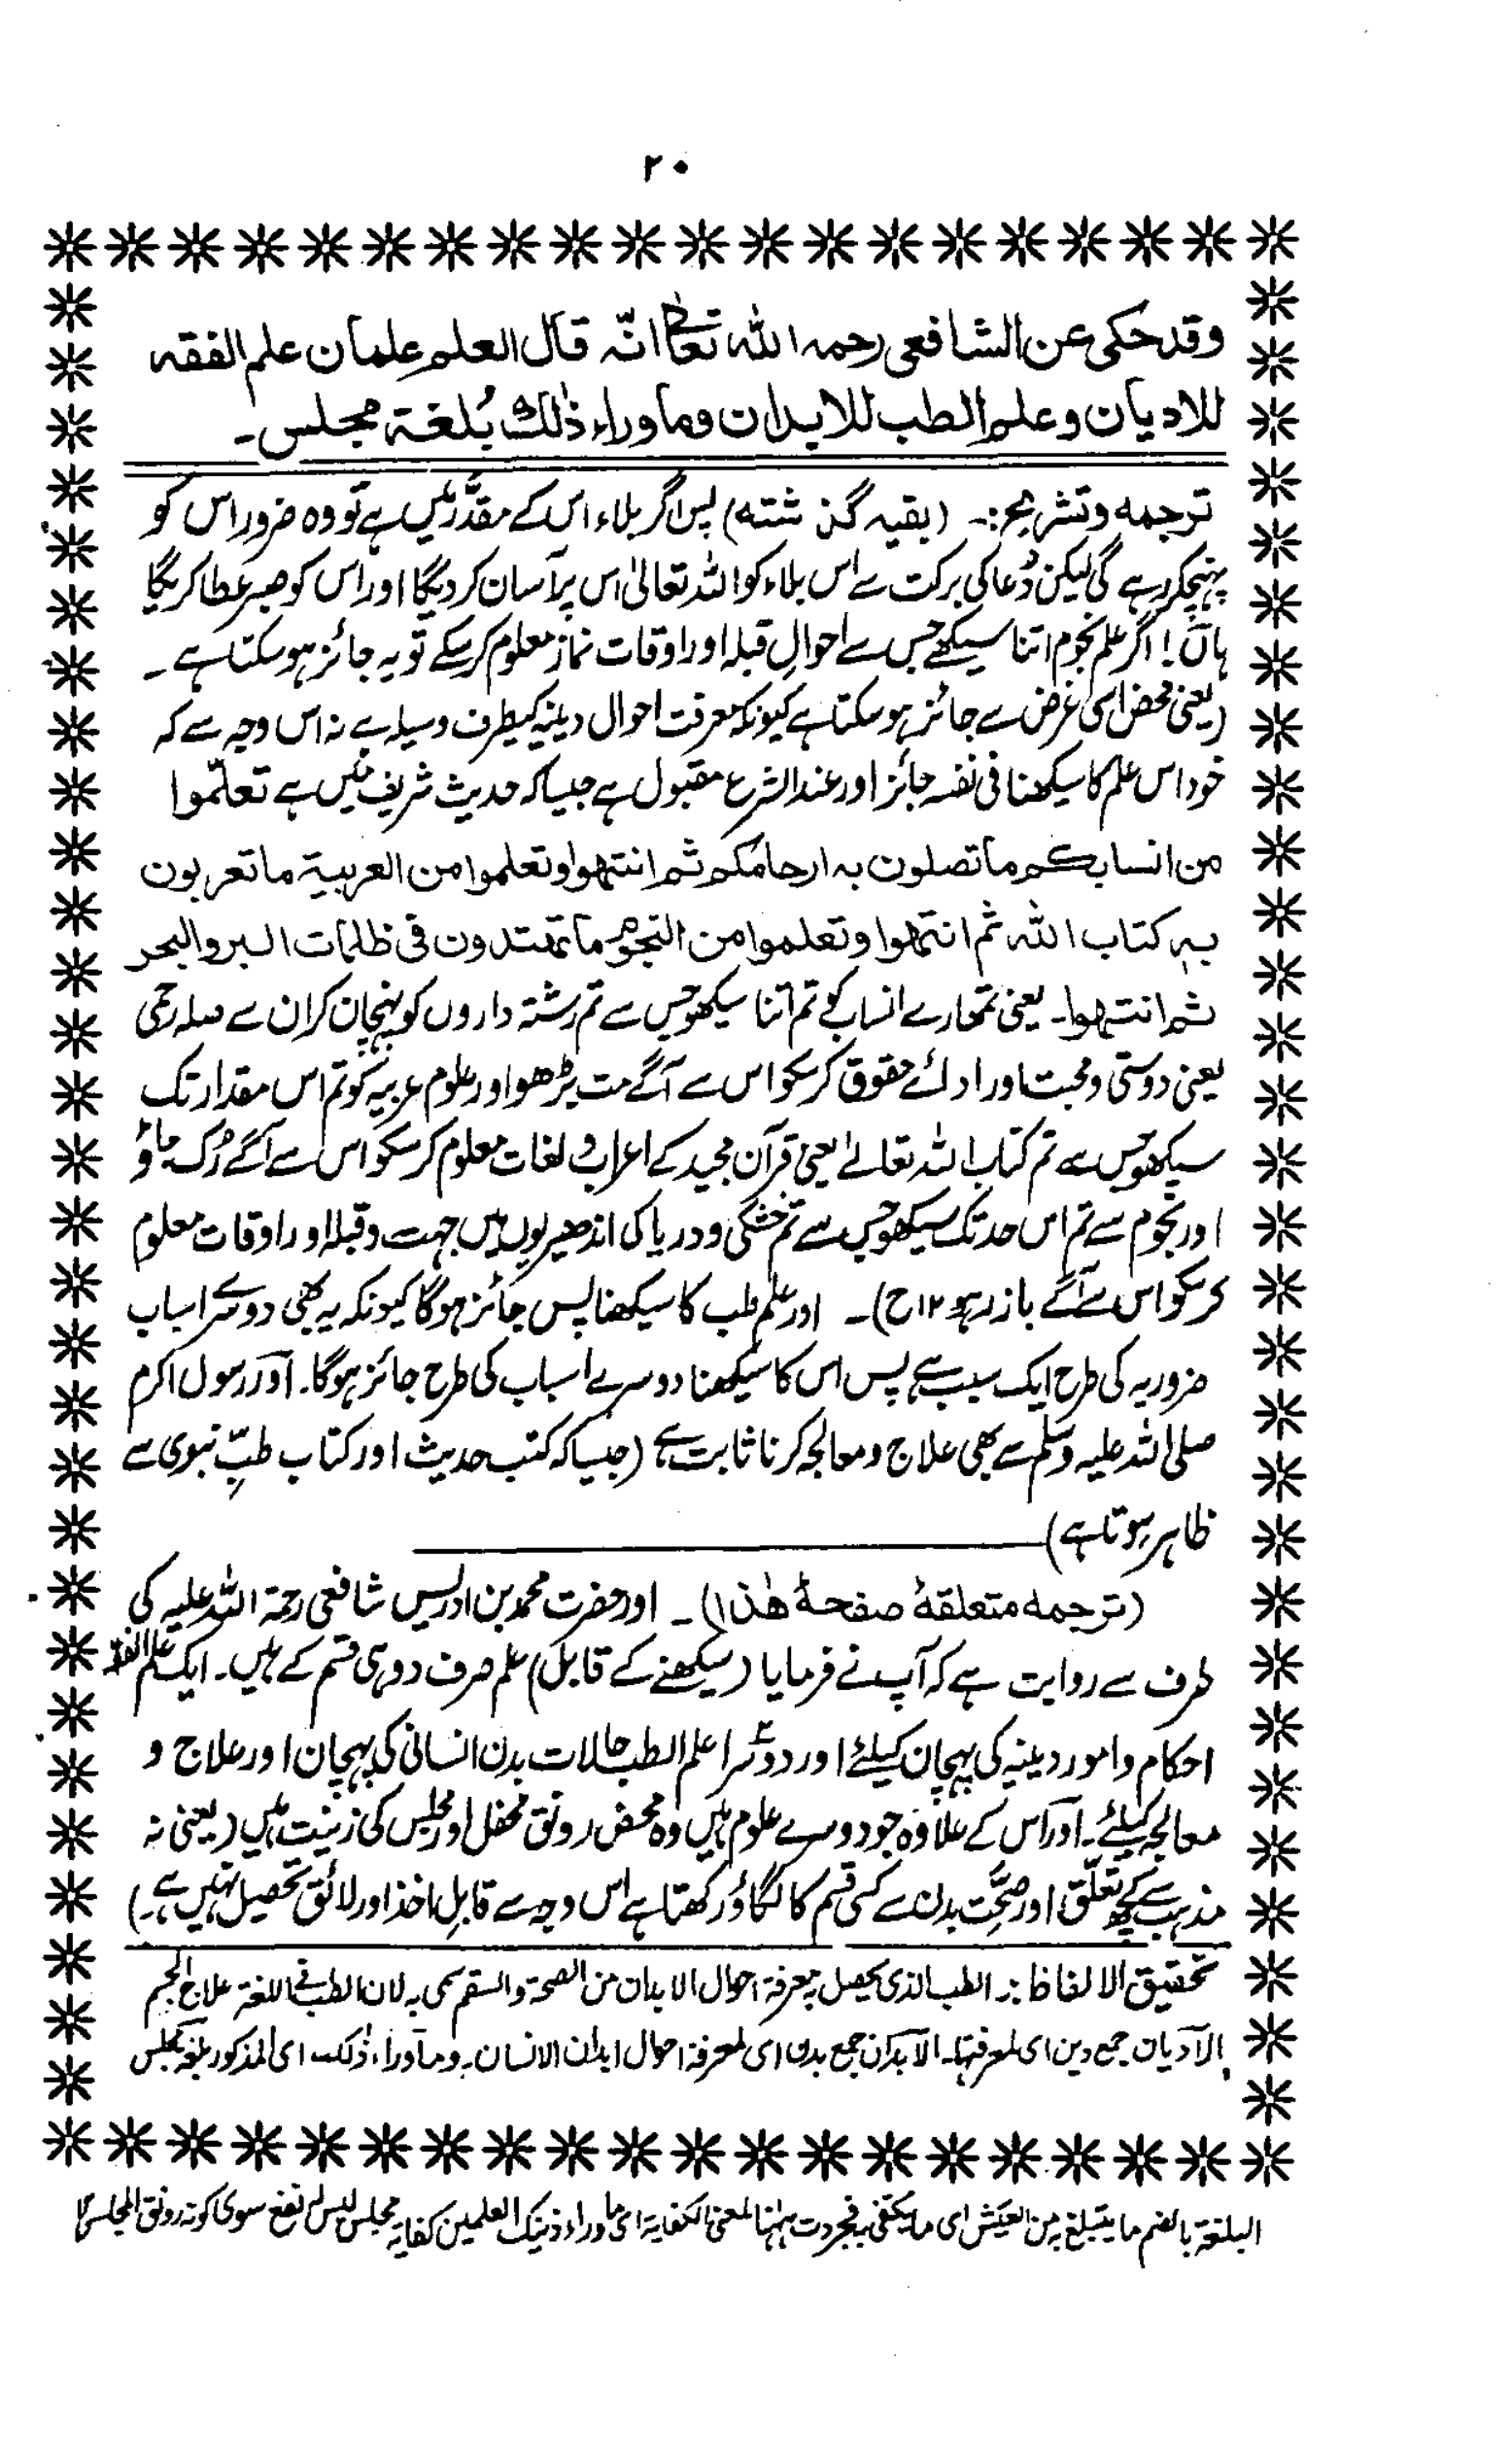 ۲۰
وقد حکی عن الشافعی رحمہ اللہ تعالیٰ انّہ قال العلم علمان علم الفقہ
للادیان وعلم الطب للابدان وما وراء ذٰلک بُلغۃ مجلس۔
ترجمہ وتشریح:۔ (بقیہ گذشتہ) پس اگر بلاء اس کے مقدّر میں ہے تو وہ ضرور اس کو
پہنچکر رہے گی لیکن دُعا کی برکت سے اس بلاء کو اللہ تعالیٰ اس پر آسان کر دیگا اور اس کو صبر عطا کریگا
ہاں! اگر علم نجوم اتنا سیکھے جس سے احوالِ قبلہ اور اوقات نماز معلوم کر سکے تو یہ جائز ہو سکتا ہے۔
(یعنی محض اسی غرض سے جائز ہو سکتا ہے کیونکہ معرفت احوال دینیہ کیطرف وسیلہ ہے نہ اس وجہ سے کہ
خود اس علم کا سیکھنا فی نفسہ جائز اور عند الشرع مقبول ہے جیسا کہ حدیث شریف میں ہے تعلّموا
من انسابکم ما تصلون بہ ارحامکم ثم انتہوا وتعلموا من العربیۃ ما تعربون
بہ کتاب اللہ ثم انتہوا وتعلموا من النجوم ما تھتدون فی ظلمات البر والبحر
ثم انتہوا۔ یعنی تمھارے انساب کو تم اتنا سیکھو جس سے تم رشتہ داروں کو پہنچان کر ان سے صلہ رحمی
یعنی دوستی ومحبت اور ادائے حقوق کر سکو اس سے آگے مت بڑھو اور علوم عربیہ کو تم اس مقدار تک
سیکھو جس سے تم کتاب اللہ تعالےٰ یعنی قرآن مجید کے اعراب و لغات معلوم کر سکو اس سے آگے رُک جاؤ
اور نجوم سے تم اس حد تک سیکھو جس سے تم خشکی و دریا کی اندھیریوں میں جہت وقبلہ اور اوقات معلوم
کر سکو اس سے آگے باز رہو ۱۲ ح)۔ اور علم طب کا سیکھنا پس جائز ہوگا کیونکہ یہ بھی دوسرے اسباب
ضروریہ کی طرح ایک سبب ہے پس اس کا سیکھنا دوسرے اسباب کی طرح جائز ہوگا۔ اور رسول اکرم
صلی اللہ علیہ وسلم سے بھی علاج ومعالجہ کرنا ثابت ہے (جیسا کہ کتب حدیث اور کتاب طبِّ نبوی سے
ظاہر ہوتا ہے)
(ترجمہ متعلقۂ صفحۂ ھٰذا)۔ اور حضرت محمد بن ادریس شافعی رحمۃ اللہ علیہ کی
طرف سے روایت ہے کہ آپ نے فرمایا (سیکھنے کے قابل) علم صرف دو ہی قسم کے ہیں۔ ایک علم الفقہ
احکام وامور دینیہ کی پہچان کیلئے اور دوسرا علم الطب حالات بدن انسانی کی پہچان اور علاج و
معالجہ کیلئے۔ اور اس کے علاوہ جو دوسرے علوم ہیں وہ محض رونق محفل اور مجلس کی زینت ہیں (یعنی نہ
مذہب سے کچھ تعلّق اور صحّتِ بدن سے کسی قسم کا لگاؤ رکھتا ہے اس وجہ سے قابلِ اخذ اور لائق تحصیل نہیں ہے۔)
تحقیق الالفاظ:۔ الطب الذی یحصل بہ معرفۃ احوال الابدان من الصحۃ والسقم سمی بہ لان الطب فی اللغۃ علاج الجسم
الادیان جمع دین ای لمعرفتہا۔ الابدان جمع بدن ای لمعرفۃ احوال ابدان الانسان۔ وما وراء ذٰلک ای المذکور بلغۃ مجلس
البلغۃ بالضم ما یتبلغ بہ من العیش ای ما یکتفی بہ فجردت ہٰہنا لمعنی الکفایۃ ای ما وراء ذینک العلمین کفایۃ مجلس لیس لہ نفع سوی کونہ رونق المجلس